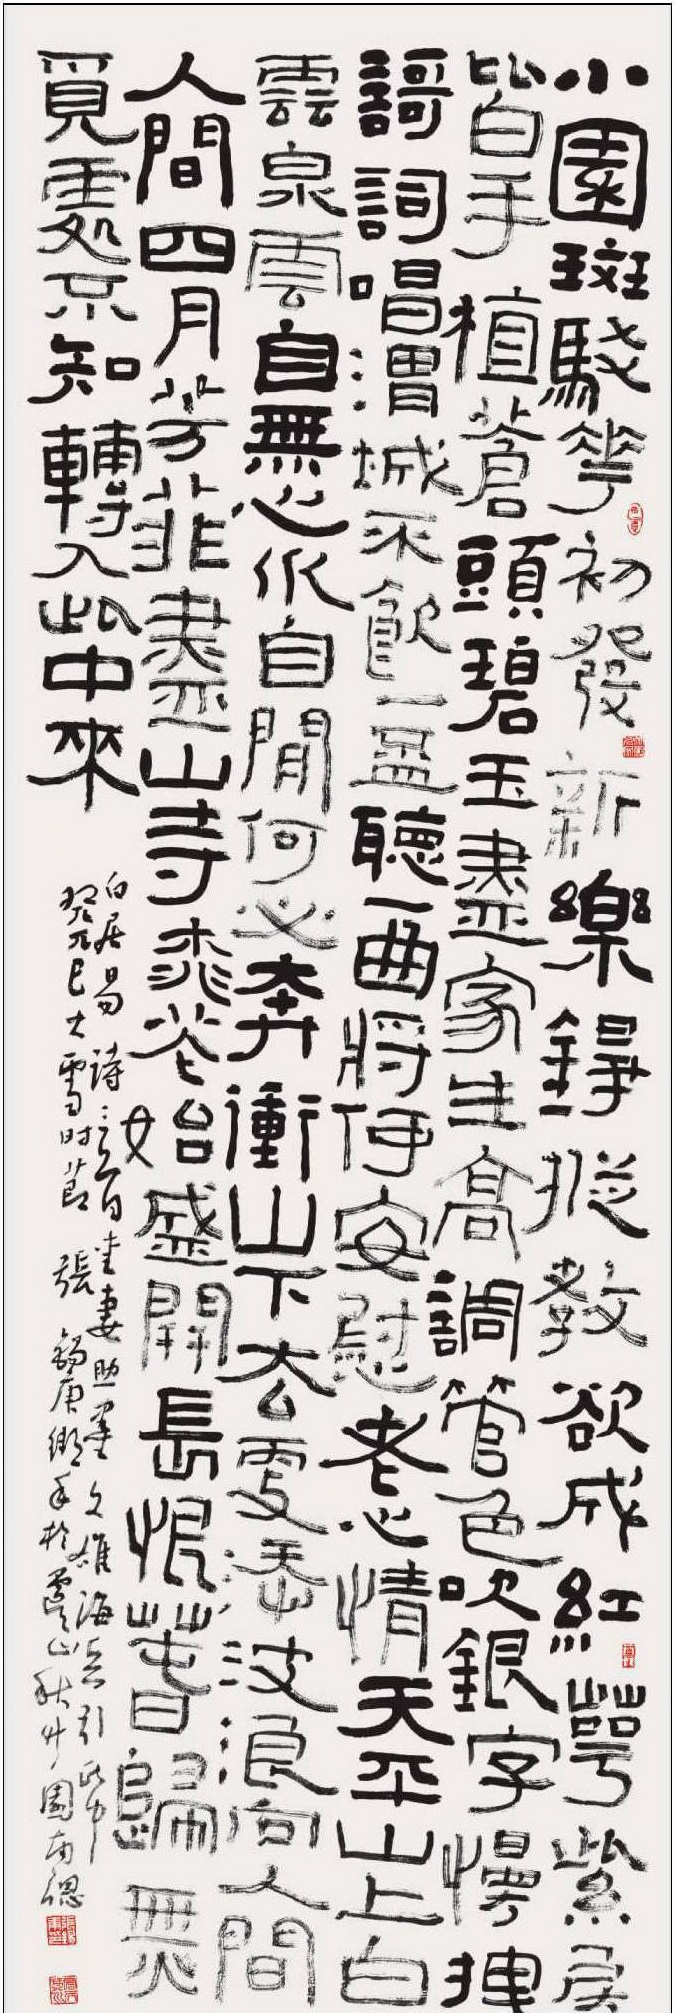 小園斑駁花初發新樂錚摐教欲成紅萼紫房
皆手植蒼頭碧玉盡家生高調管色吹銀字慢拽
謌詞唱渭城不飲一盃聽一曲將何安慰老心情天平山上白
雲泉雲自無心水自閒何必奔衝山下去更添波浪向人間
人間四月芳菲盡山寺桃花始盛開長恨春歸無
覓處不知轉入此中來
白居易詩三首
癸巳大雪时节 張錫庚 於虞山秋艸園南